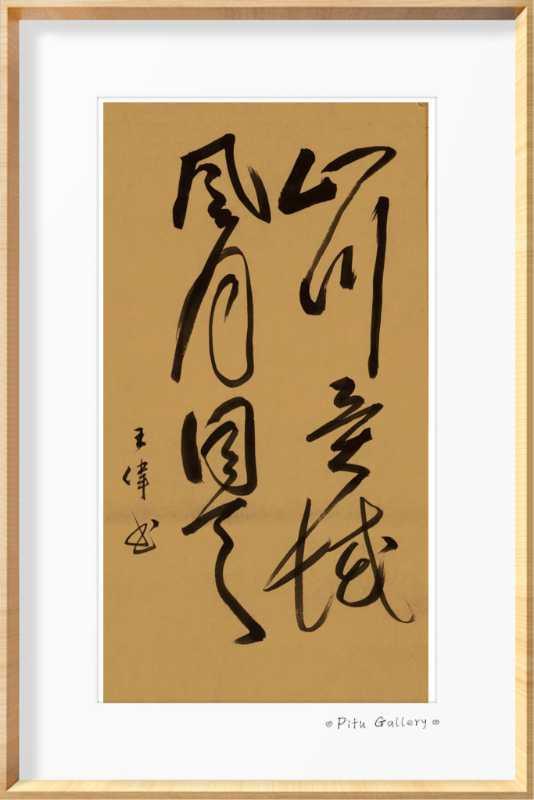 山川异域
风月同天
王偉书
Pitu Gallery